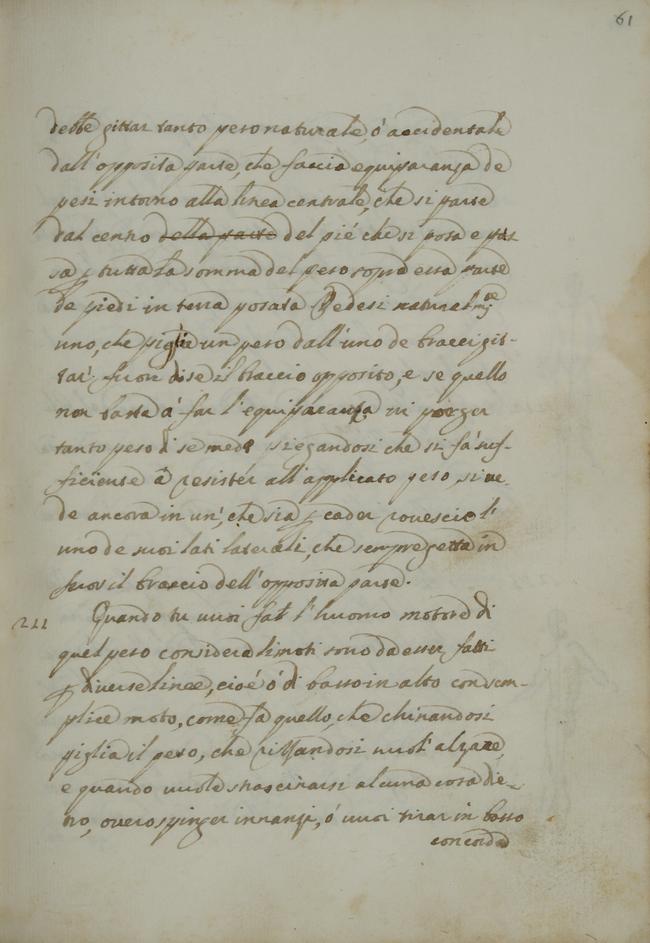 61
debbe gittar tanto peso naturale, ó accidentale
dall'opposita parte, che faccia equiparanza de
pesi intorno alla linea centrale, che si parte
dal centro della parte del pié che si posa e pas
sa p tutta la somma del peso sopra essa parte
de piedi in terra posata Vedesi naturalmte
uno, che piglia un peso dall'uno de bracci git-
tar fuori di se il braccio opposito, e se quello
non basta á far l'equiparanza vi porger
tanto peso di se mede piegandosi che si fá suf-
ficiente á resister all'applicato peso, si ve-
de ancora in un', che sia p cader rovescio l'
uno de suoi lati laterali, che sempre getta in
fuor il braccio dell'opposita parte.
211 Quando tu vuoi far l'huomo motore di
quel peso considera li moti sono da esser fatti
p diverse linee, cioé ó di basso in alto con sem-
plice moto, come fa quello, che chinandosi
piglia il peso, che rizzandosi vuol' alzare,
e quando vuole strascinarsi alcuna cosa die-
tro, overo spinger innanzi, ó vuoi tirar in basso
con corda